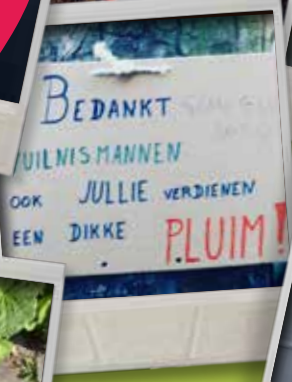 BEDANKT
VUILNISMANNEN
OOK JULLIE VERDIENEN
EEN DIKKE PLUIM!